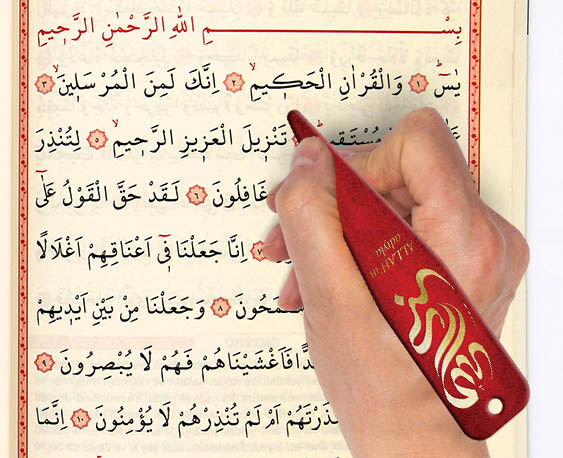 بِسْمِ اللهِ الرَّحْمٰنِ الرَّحٖيمِ
يٰسٓ ﴿١﴾ وَالْقُرْاٰنِ الْحَكٖيمِۙ ﴿٢﴾ اِنَّكَ لَمِنَ الْمُرْسَلٖينَۙ ﴿٣﴾
تَنْزٖيلَ الْعَزٖيزِ الرَّحٖيمِۙ ﴿٥﴾ لِتُنْذِرَ
غَافِلُونَ ﴿٦﴾ لَقَدْ حَقَّ الْقَوْلُ عَلٰٓى
﴿٧﴾ اِنَّا جَعَلْنَا فٖٓى اَعْنَاقِهِمْ اَغْلَالًا
﴿٨﴾ وَجَعَلْنَا مِنْ بَيْنِ اَيْدٖيهِمْ
فَاَغْشَيْنَاهُمْ فَهُمْ لَا يُبْصِرُونَ ﴿٩﴾
اَمْ لَمْ تُنْذِرْهُمْ لَا يُؤْمِنُونَ ﴿١٠﴾ اِنَّمَا
ALLAH'ın
adıyla